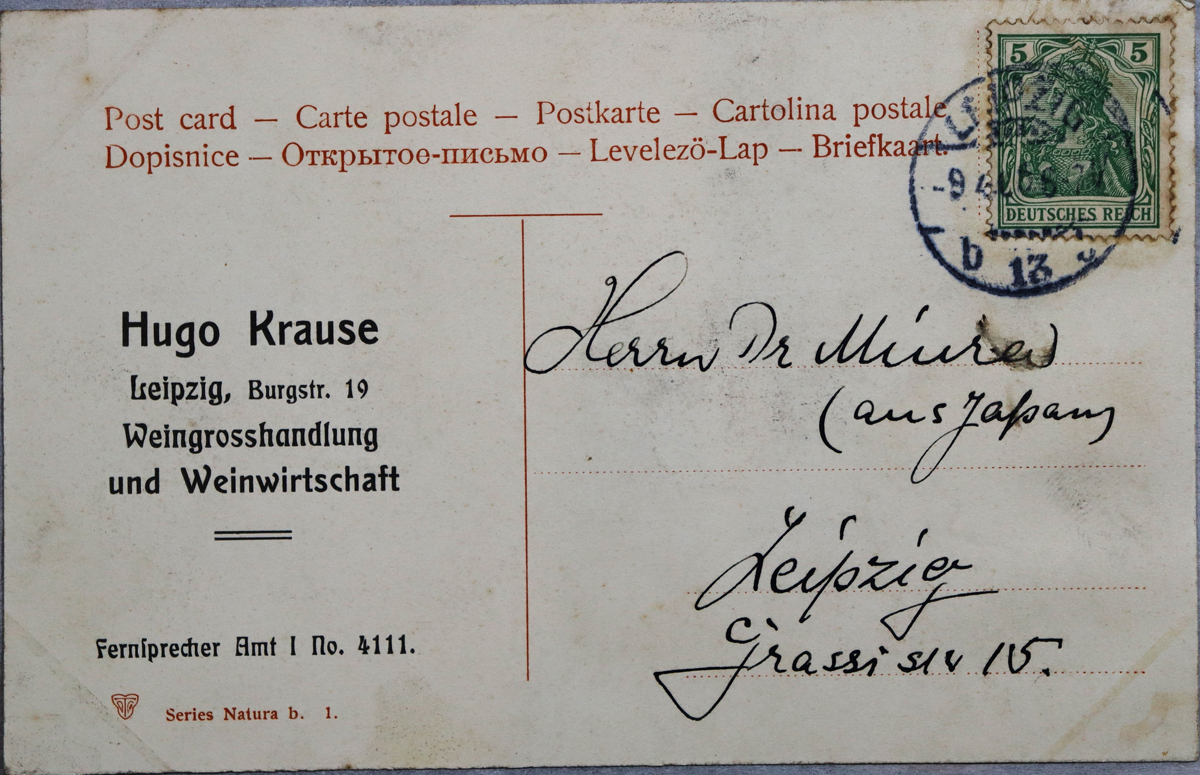 Post card — Carte postale — Postkarte — Cartolina postale
Dopisnice — Открытое-письмо — Levelezö-Lap — Briefkaart.
5 5
DEUTSCHES REICH
LEIPZIG
b 13
Hugo Krause
Leipzig, Burgstr. 19
Weingrosshandlung
und Weinwirtschaft
Fernsprecher Amt I No. 4111.
Series Natura b. 1.
Herrn Dr Miura
(aus Japan)
Leipzig
Grassistr 15.